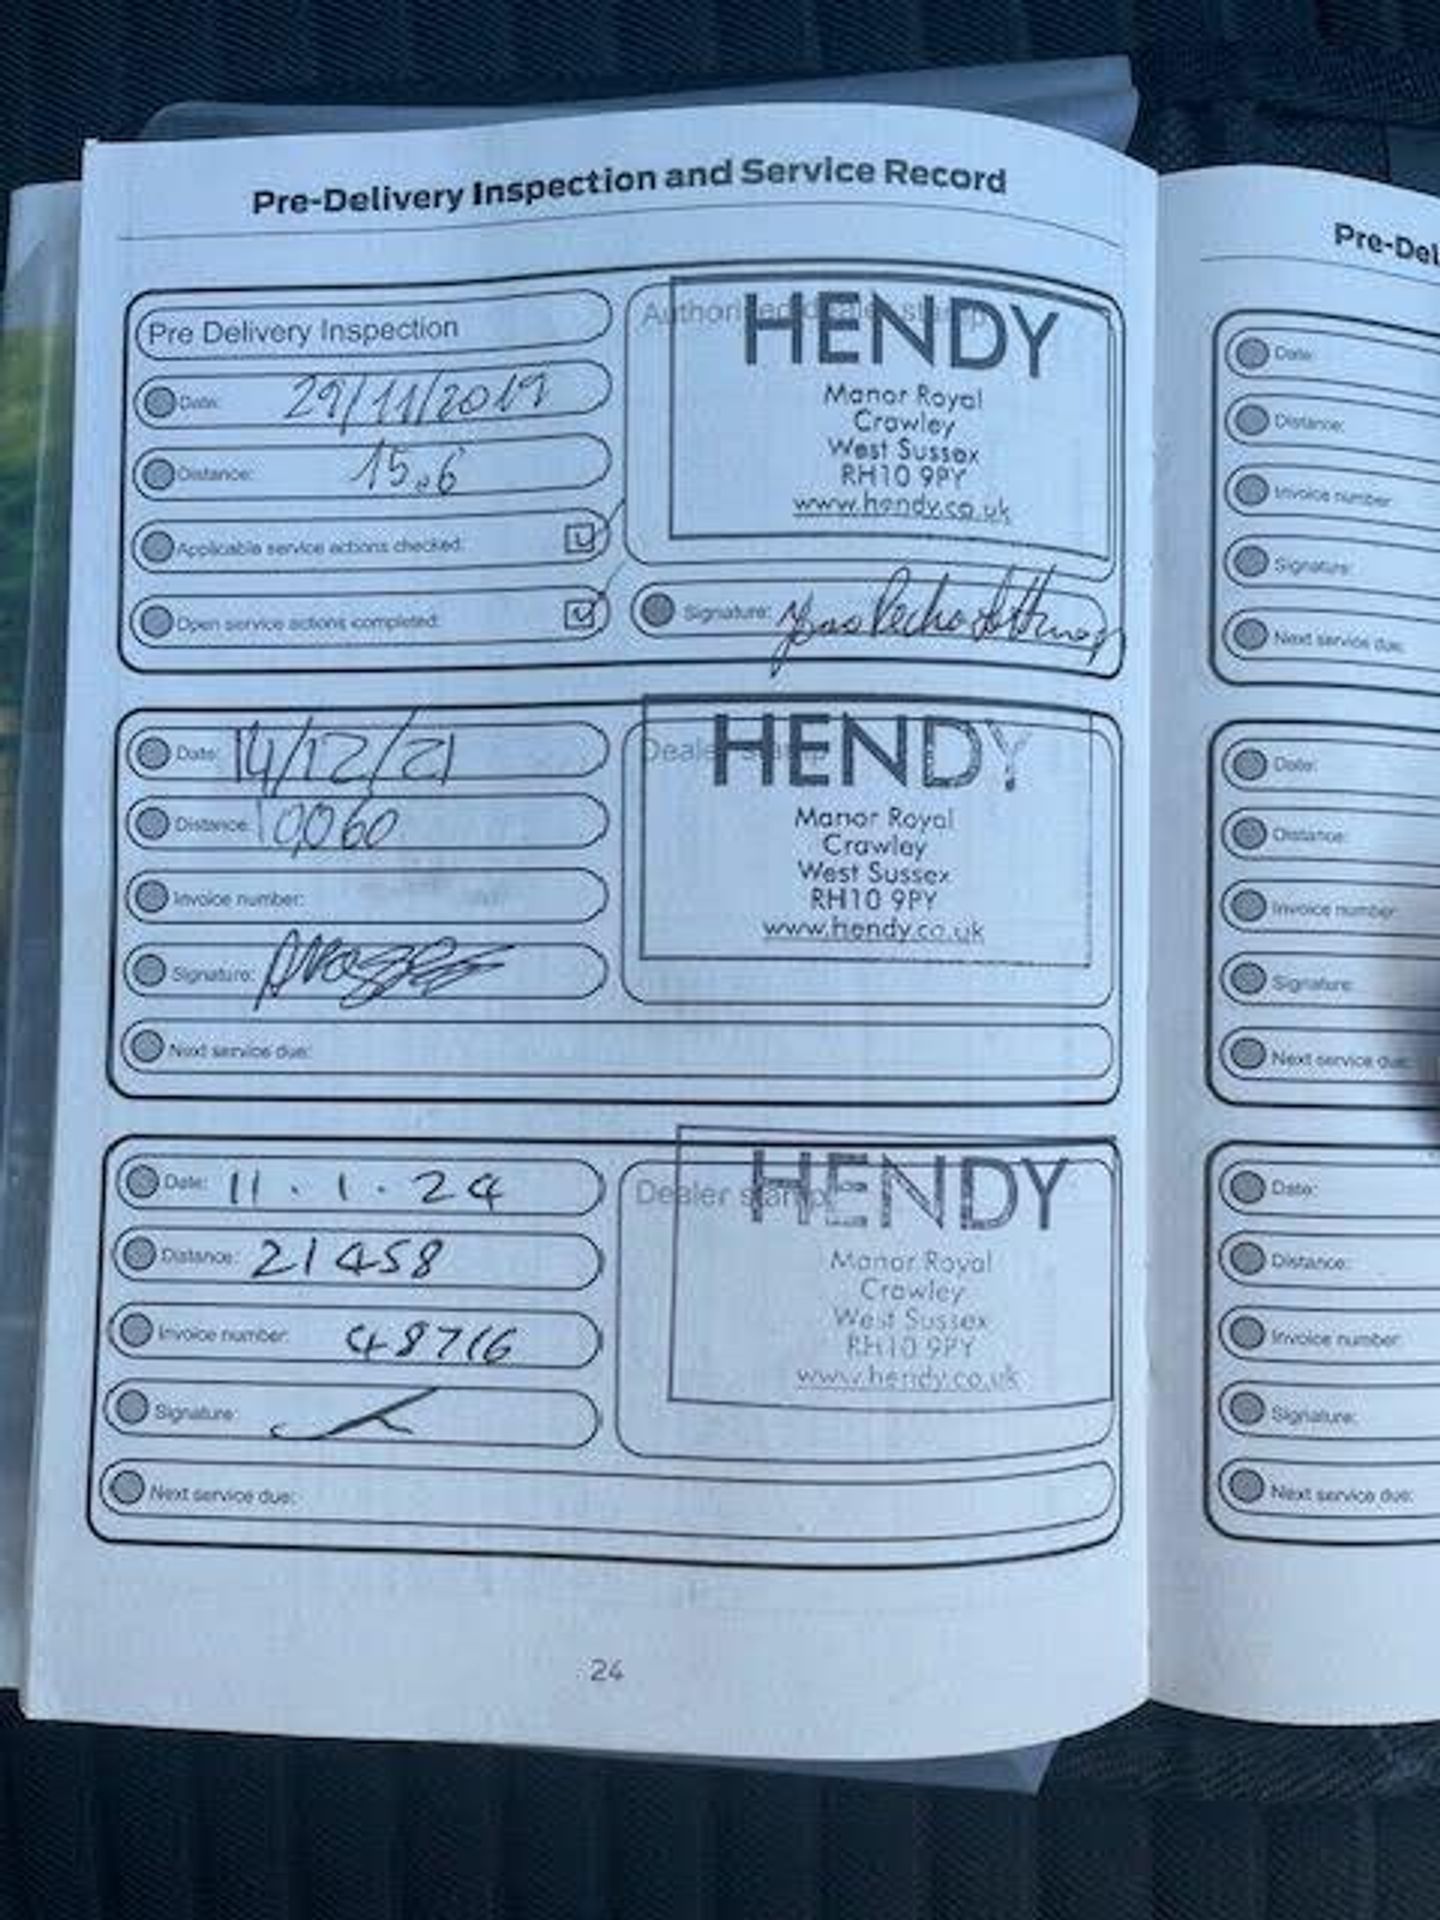 Pre-Delivery Inspection and Service Record
Pre Delivery Inspection
Date: 29/11/2019
Distance: 15.6
Applicable service actions checked:
Open service actions completed:
Authorised dealer stamp
HENDY
Manor Royal
Crawley
West Sussex
RH10 9PY
www.hendy.co.uk
Signature:
Date: 14/12/21
Distance: 10060
Invoice number:
Signature:
Next service due:
Dealer stamp
HENDY
Manor Royal
Crawley
West Sussex
RH10 9PY
www.hendy.co.uk
Date: 11.1.24
Distance: 21458
Invoice number: 48716
Signature:
Next service due:
Dealer stamp
HENDY
Manor Royal
Crawley
West Sussex
RH10 9PY
www.hendy.co.uk
24
Pre-Del
Date:
Distance:
Invoice number:
Signature:
Next service due:
Date:
Distance:
Invoice number:
Signature:
Next service due:
Date:
Distance:
Invoice number:
Signature:
Next service due: